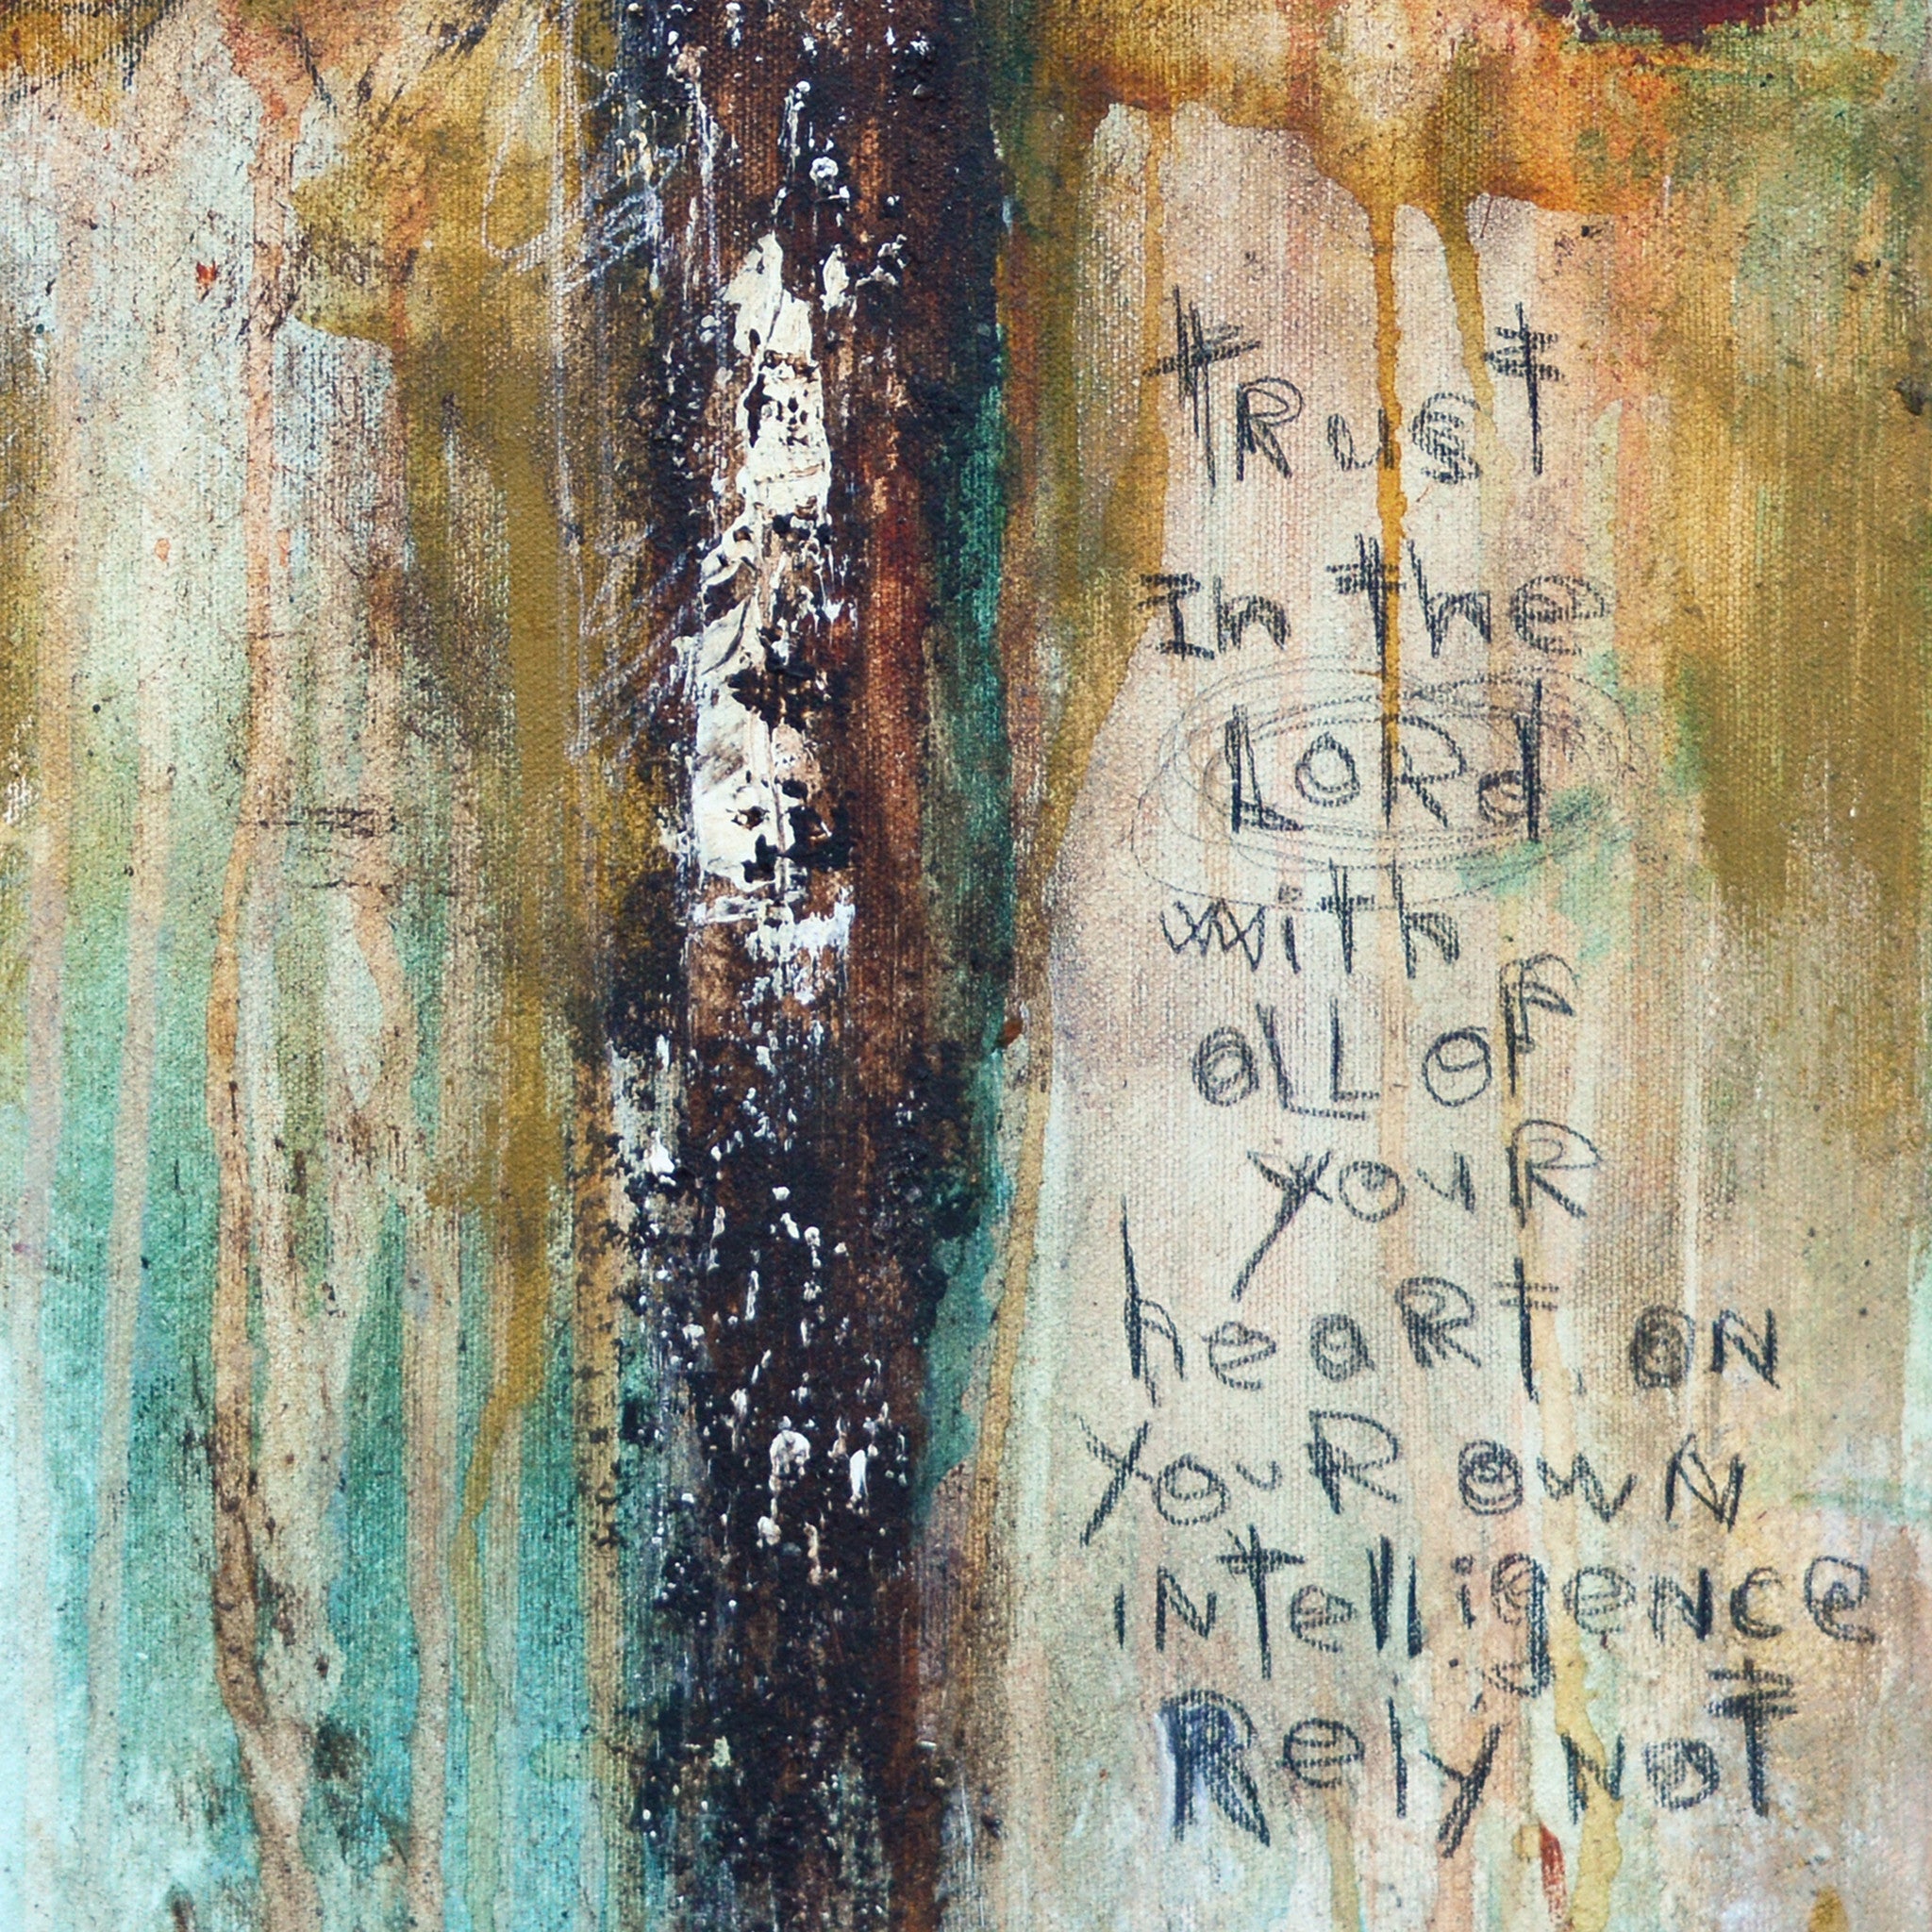 tRust
In the
LORd
with
aLL OF
youR
heaRt, ON
YouR OwN
iNTelligeNce
Rely NOT